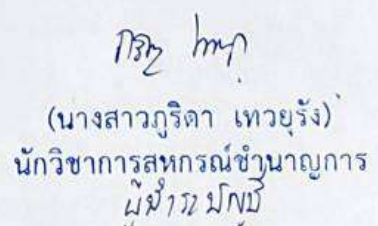 (นางสาวภูริดา เทวยุรัง)
นักวิชาการสหกรณ์ชำนาญการ
ผู้ชำระบัญชี